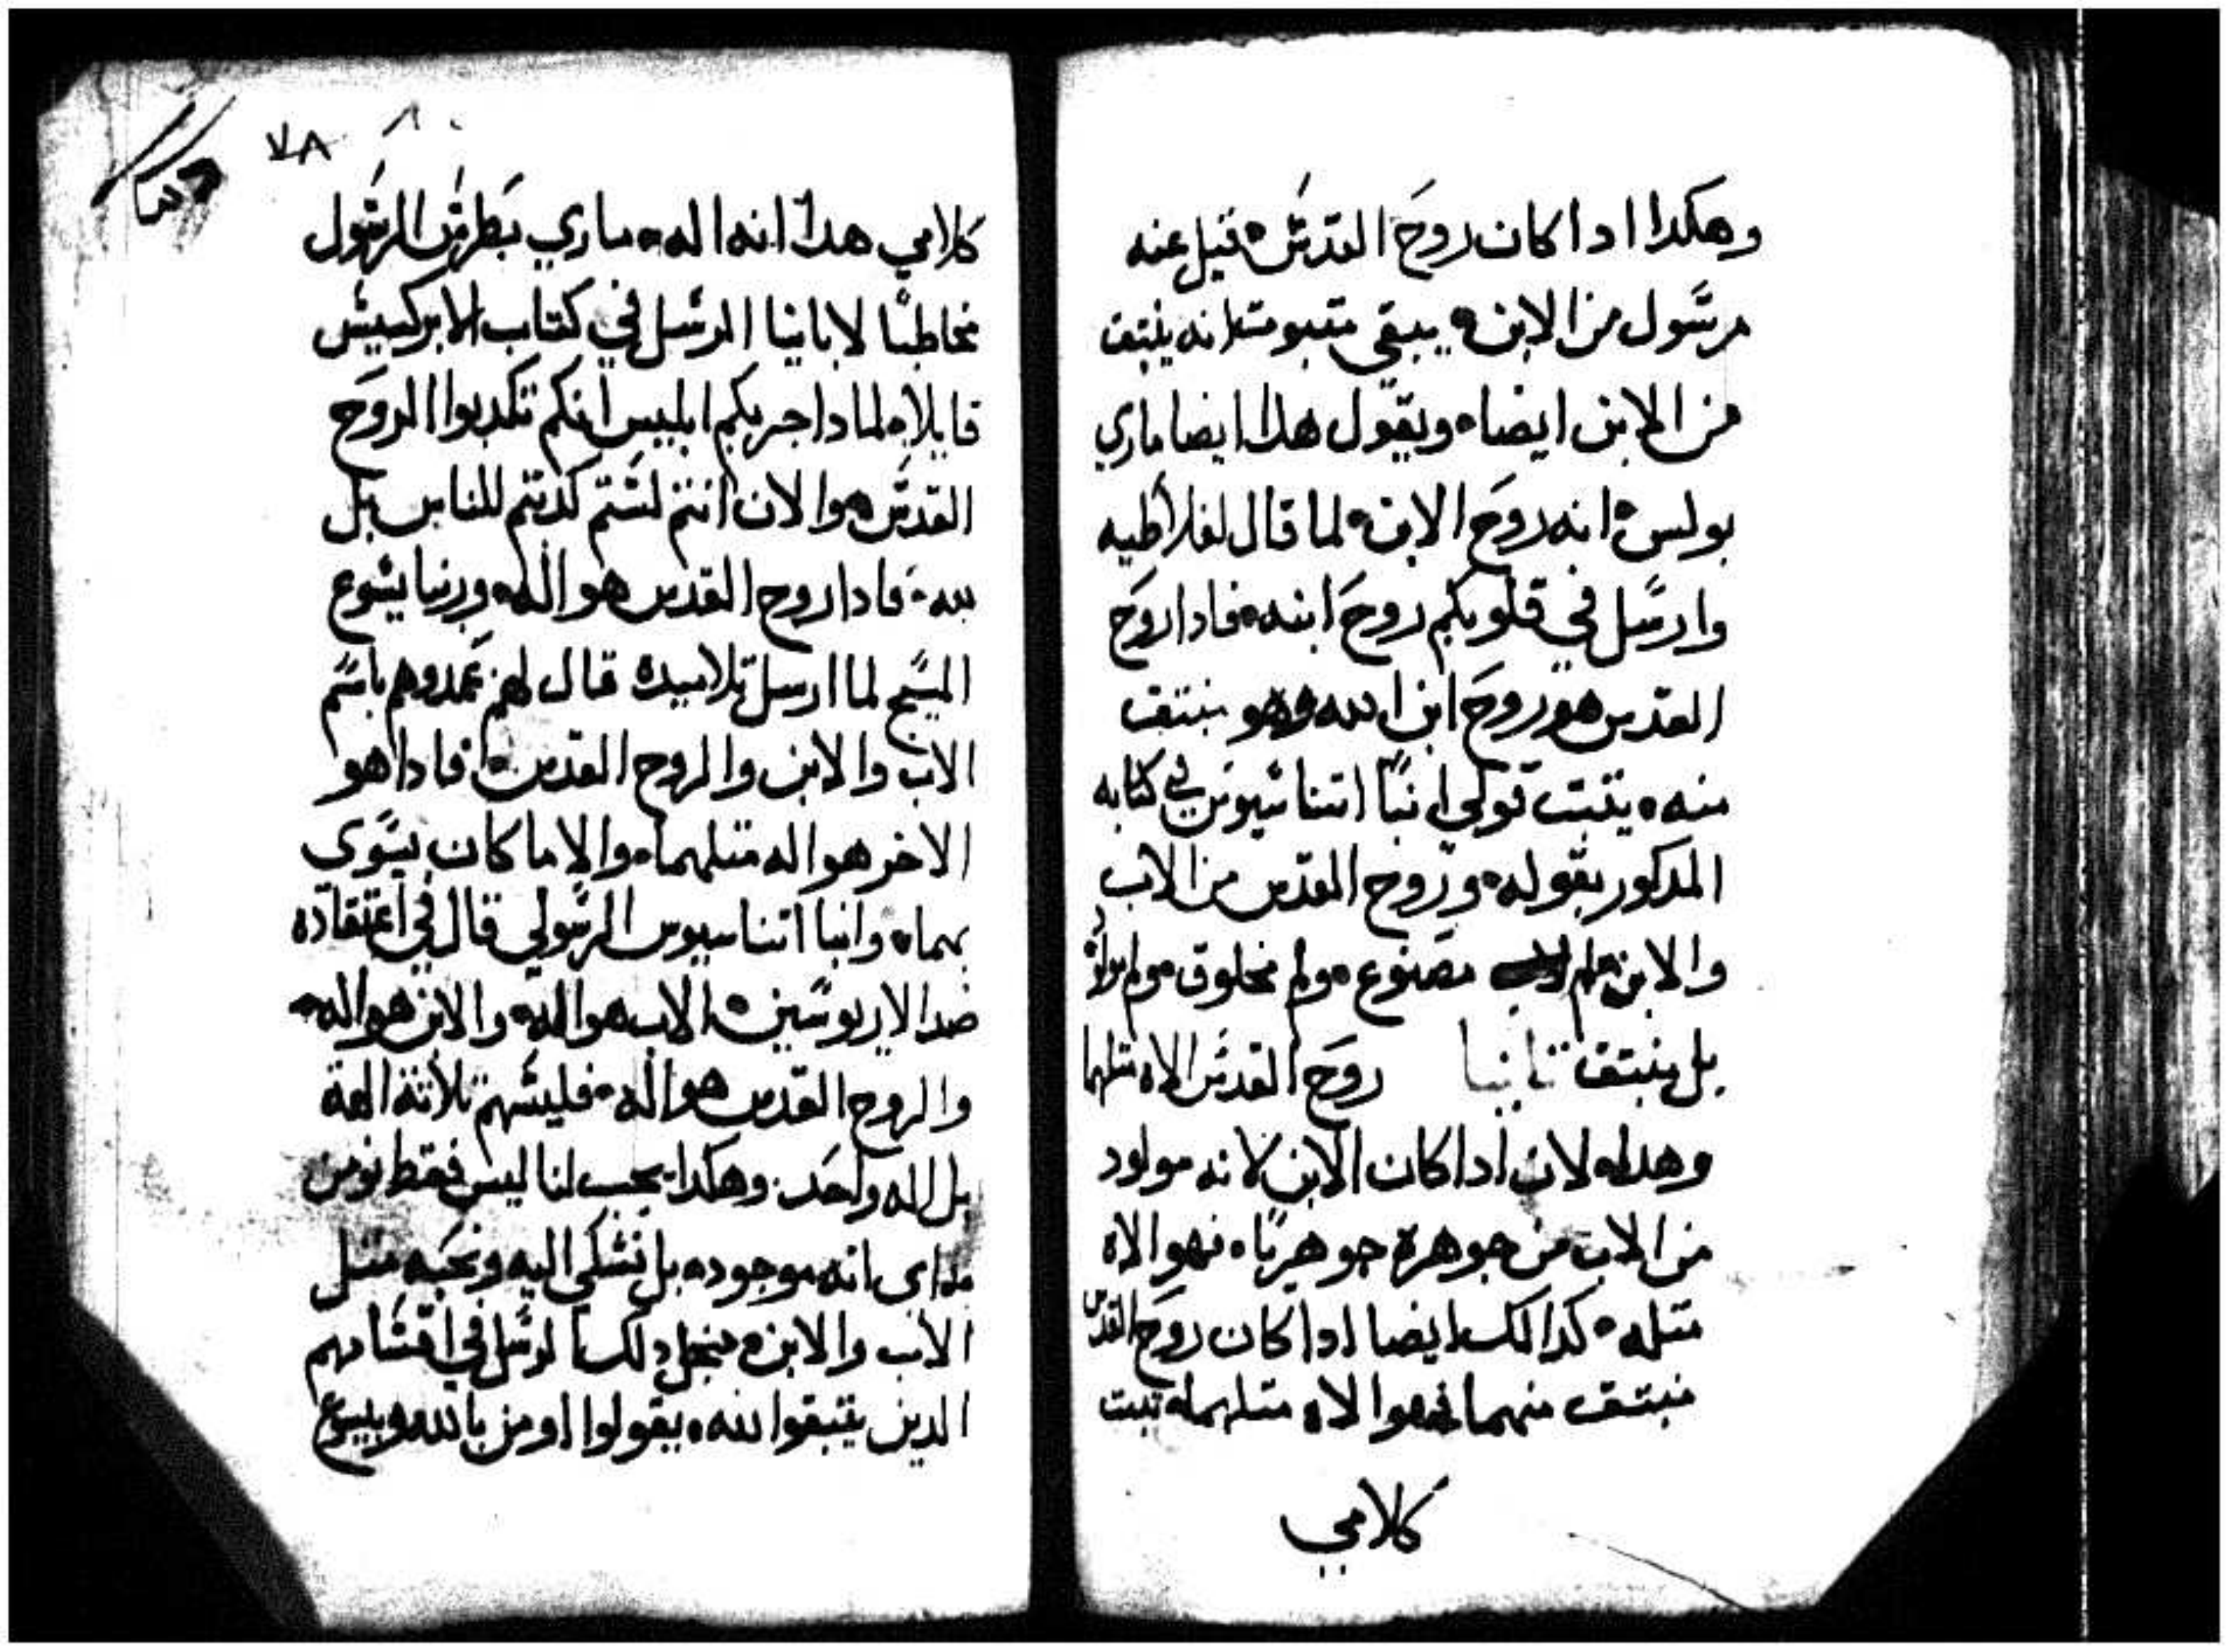 وهكدا ادا كان روح القدس قيل عنه
مرسول من الابن يبقي متبوت انه ينبتق
من الابن ايضا ويقول هدا ايضا ماري
بولس انه روح الابن لما قال لغلاطيه
وارسل في قلوبكم روح ابنه فادا روح
القدس هو روح ابن الله وهو منبتق
منه يتبت قولي انبا اتناسيوس في كتابه
المدكور بقوله وروح القدس من الاب
والابن لم مصنوع ولم مخلوق ولم مولود
بل منبتق تانيا روح القدس الاه متلهما
وهدا لان ادا كان الابن لانه مولود
من الاب من جوهره جوهريا فهو الاه
متله كدالك ايضا ادا كان روح القدس
منبتق منهما فهو الاه متلهما تبت
كلامي
٧٨
كلامي هدا انه اله ماري بطرس الرسول
مخاطبا لابانيا المرسل في كتاب الابركسيس
قايلا لمادا جربكم ابليس انكم تكدبوا الروح
القدس والان انتم لستم كدبتم للناس بل
لله فادا روح القدس هو اله وربنا يسوع
المسيح لما ارسل تلاميده قال لهم عمدوهم باسم
الاب والابن والروح القدس فادا هو
الاخر هو اله متلهما والا ما كان يسوي
بهما وانبا اتناسيوس الرسولي قال في اعتقاده
ضد الاريوسين الاب هو اله والابن هو اله
والروح القدس هو اله فليسهم تلاتة الهة
بل اله واحد وهكدا يجب لنا ليس فقط نومن
انه موجود بل نشكي اليه ونحبه متل
الاب والابن دلك في
الدين يتبقوا لله يقولوا اومن بالله وبيسوع